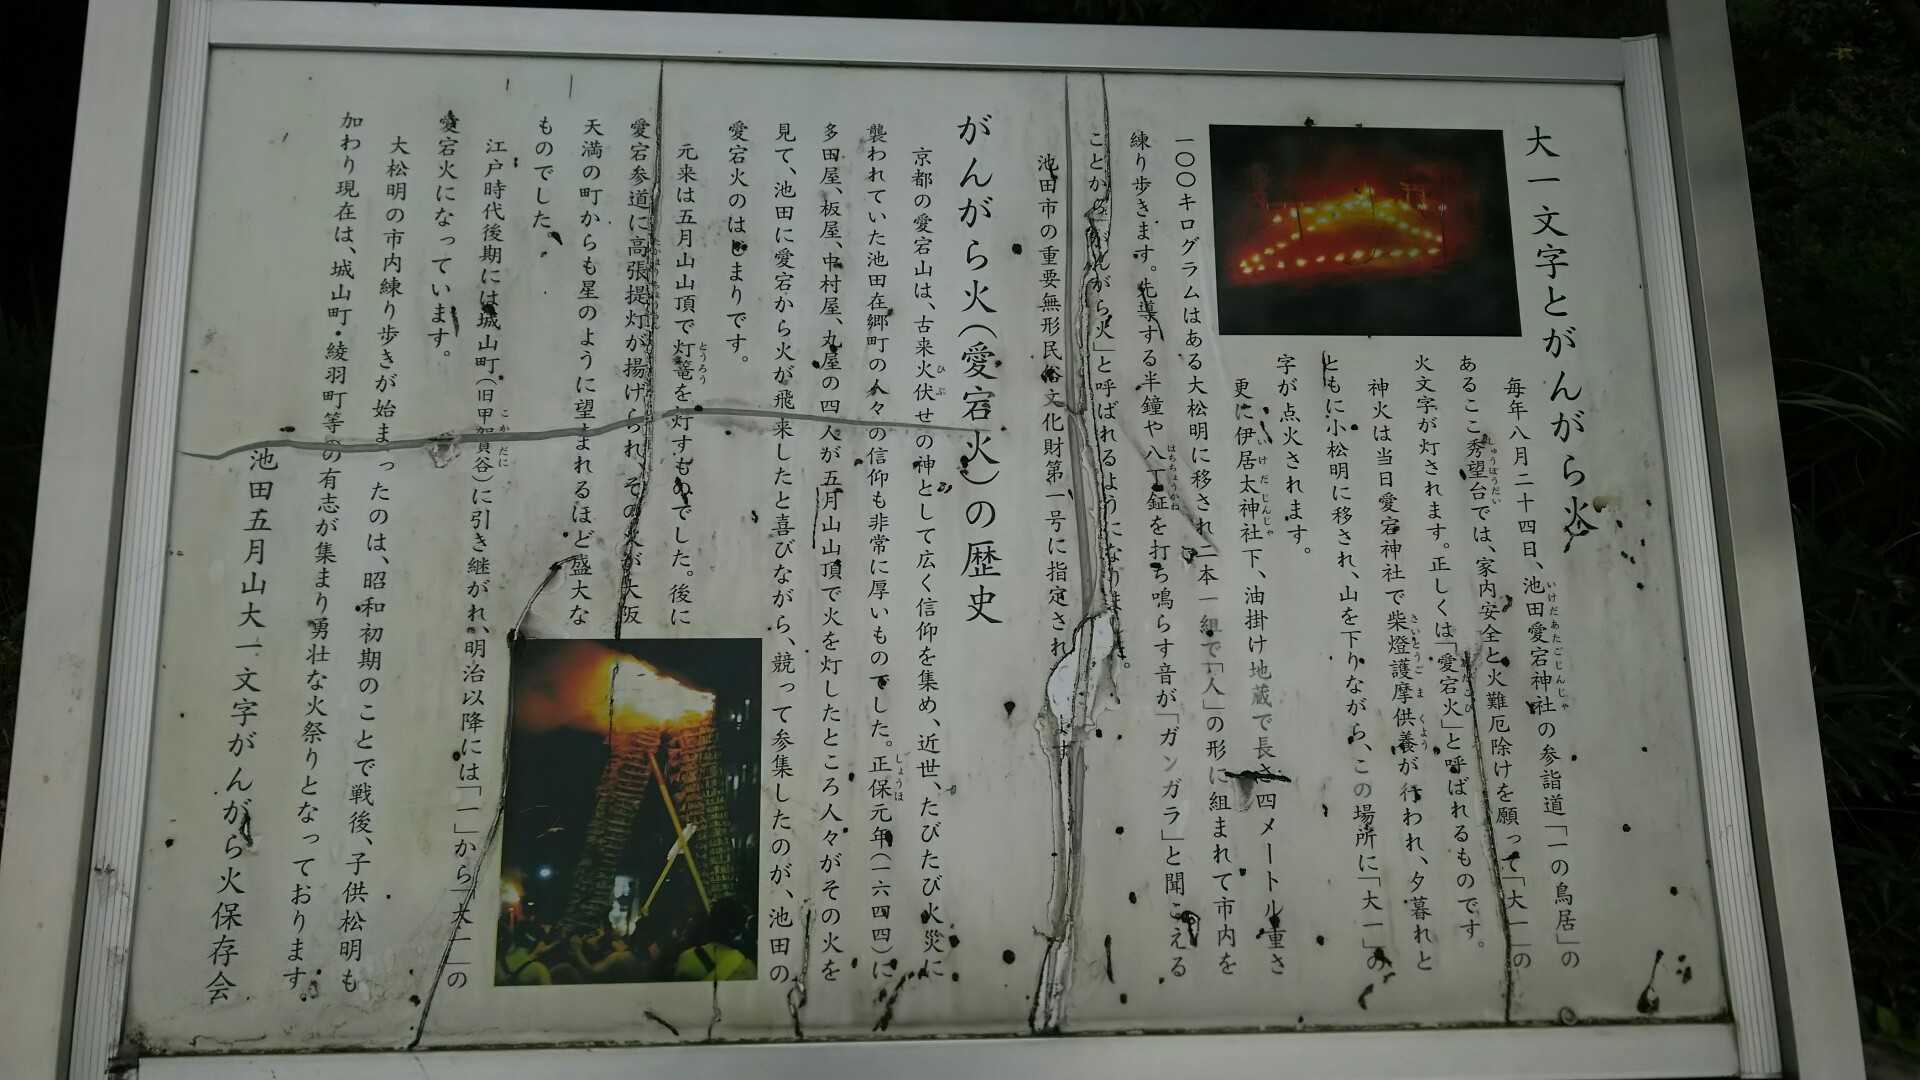 大一文字とがんがら火
毎年八月二十四日、池田愛宕神社の参詣道「一の鳥居」の
あるここ秀望台では、家内安全と火難厄除けを願って「大一」の
火文字が灯されます。正しくは「愛宕火」と呼ばれるものです。
神火は当日愛宕神社で柴燈護摩供養が行われ、夕暮れと
ともに小松明に移され、山を下りながら、この場所に「大一」の
字が点火されます。
更に伊居太神社下、油掛け地蔵で長さ四メートル重さ
一〇〇キログラムはある大松明に移され二本一組で「人」の形に組まれて市内を
練り歩きます。先導する半鐘や八丁鉦を打ち鳴らす音が「ガンガラ」と聞こえる
ことから「がんがら火」と呼ばれるようになりました。
池田市の重要無形民俗文化財第一号に指定され
がんがら火(愛宕火)の歴史
京都の愛宕山は、古来火伏せの神として広く信仰を集め、近世、たびたび火災に
襲われていた池田在郷町の人々の信仰も非常に厚いものでした。正保元年(一六四四)に
多田屋、板屋、中村屋、丸屋の四人が五月山山頂で火を灯したところ人々がその火を
見て、池田に愛宕から火が飛来したと喜びながら、競って参集したのが、池田の
愛宕火のはじまりです。
元来は五月山山頂で灯篭を灯すものでした。後に
愛宕参道に高張提灯が揚げられ、その火が大阪
天満の町からも星のように望まれるほど盛大な
ものでした。
江戸時代後期には城山町(旧甲賀谷)に引き継がれ、明治以降には「一」から「大一」の
愛宕火になっています。
大松明の市内練り歩きが始まったのは、昭和初期のことで戦後、子供松明も
加わり現在は、城山町・綾羽町等の有志が集まり勇壮な火祭りとなっております。
池田五月山大一文字がんがら火保存会